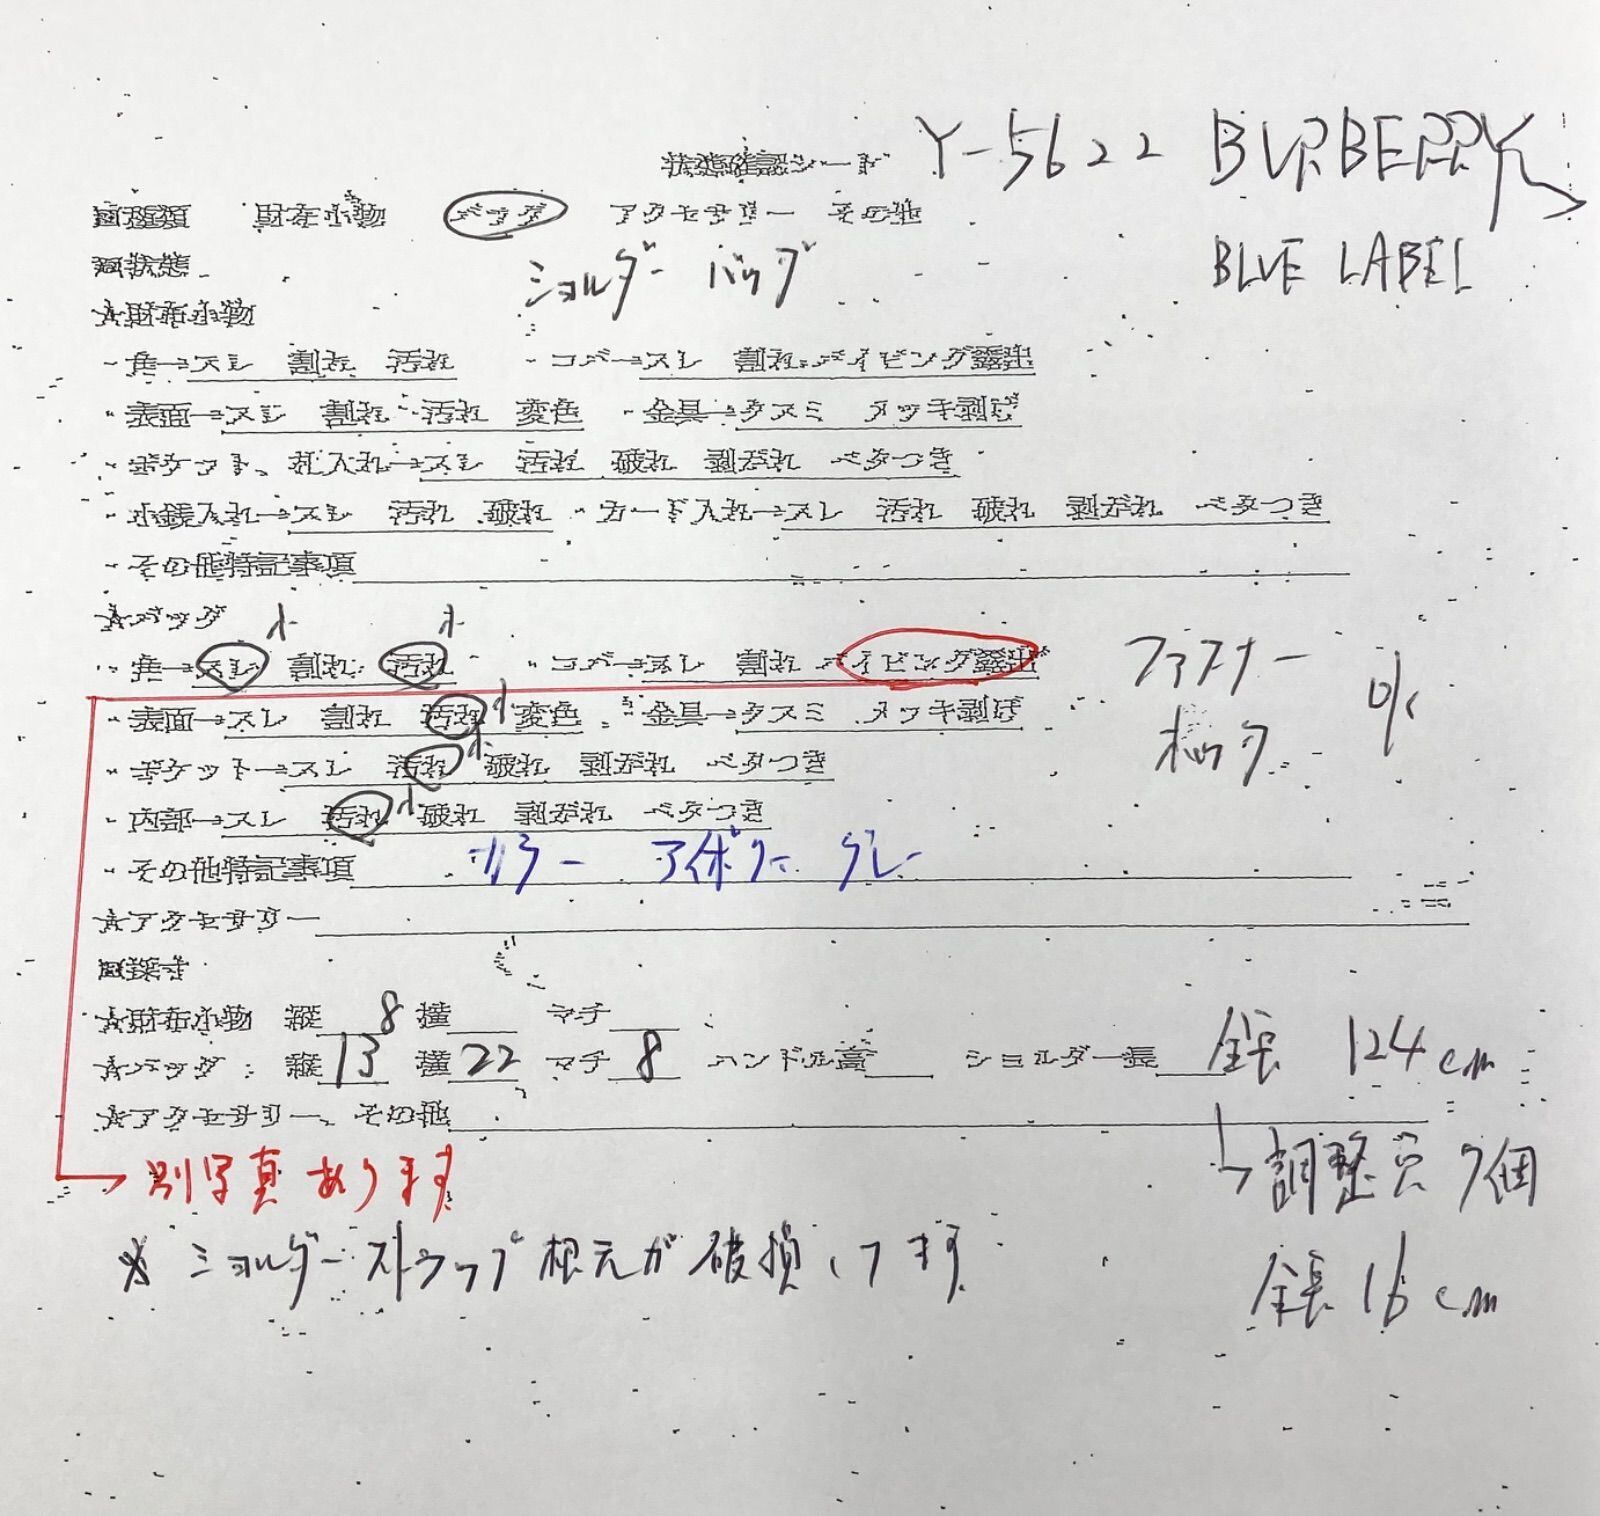 状態確認シート Y-5622 BURBERRY
■種類 財布小物 バッグ アクセサリー その他
BLUE LABEL
■状態 ショルダーバッグ
★財布小物
・角→スレ 割れ 汚れ ・コバ→スレ 割れ パイピング露出
・表面→スレ 割れ 汚れ 変色 ・金具→クスミ メッキ剥げ
・ポケット、札入れ→スレ 汚れ 破れ 剥がれ ベタつき
・小銭入れ→スレ 汚れ 破れ ・カード入れ→スレ 汚れ 破れ 剥がれ ベタつき
・その他特記事項
★バッグ 小 小
・角→スレ 割れ 汚れ ・コバ→スレ 割れ パイピング露出 ファスナー OK
・表面→スレ 割れ 汚れ 小 変色 ・金具→クスミ メッキ剥げ ホック
・ポケット→スレ 汚れ 小 破れ 剥がれ ベタつき
・内部→スレ 汚れ 小 破れ 剥がれ ベタつき
・その他特記事項 カラー アイボリー グレー
★アクセサリー
■採寸
★財布小物 縦 8 横 マチ
★バッグ 縦 13 横 22 マチ 8 ハンドル高 ショルダー長 全長 124cm
★アクセサリー、その他
↳調整穴 7個
→別写真あります
※ショルダーストラップ根元が破損してます
全長 16cm